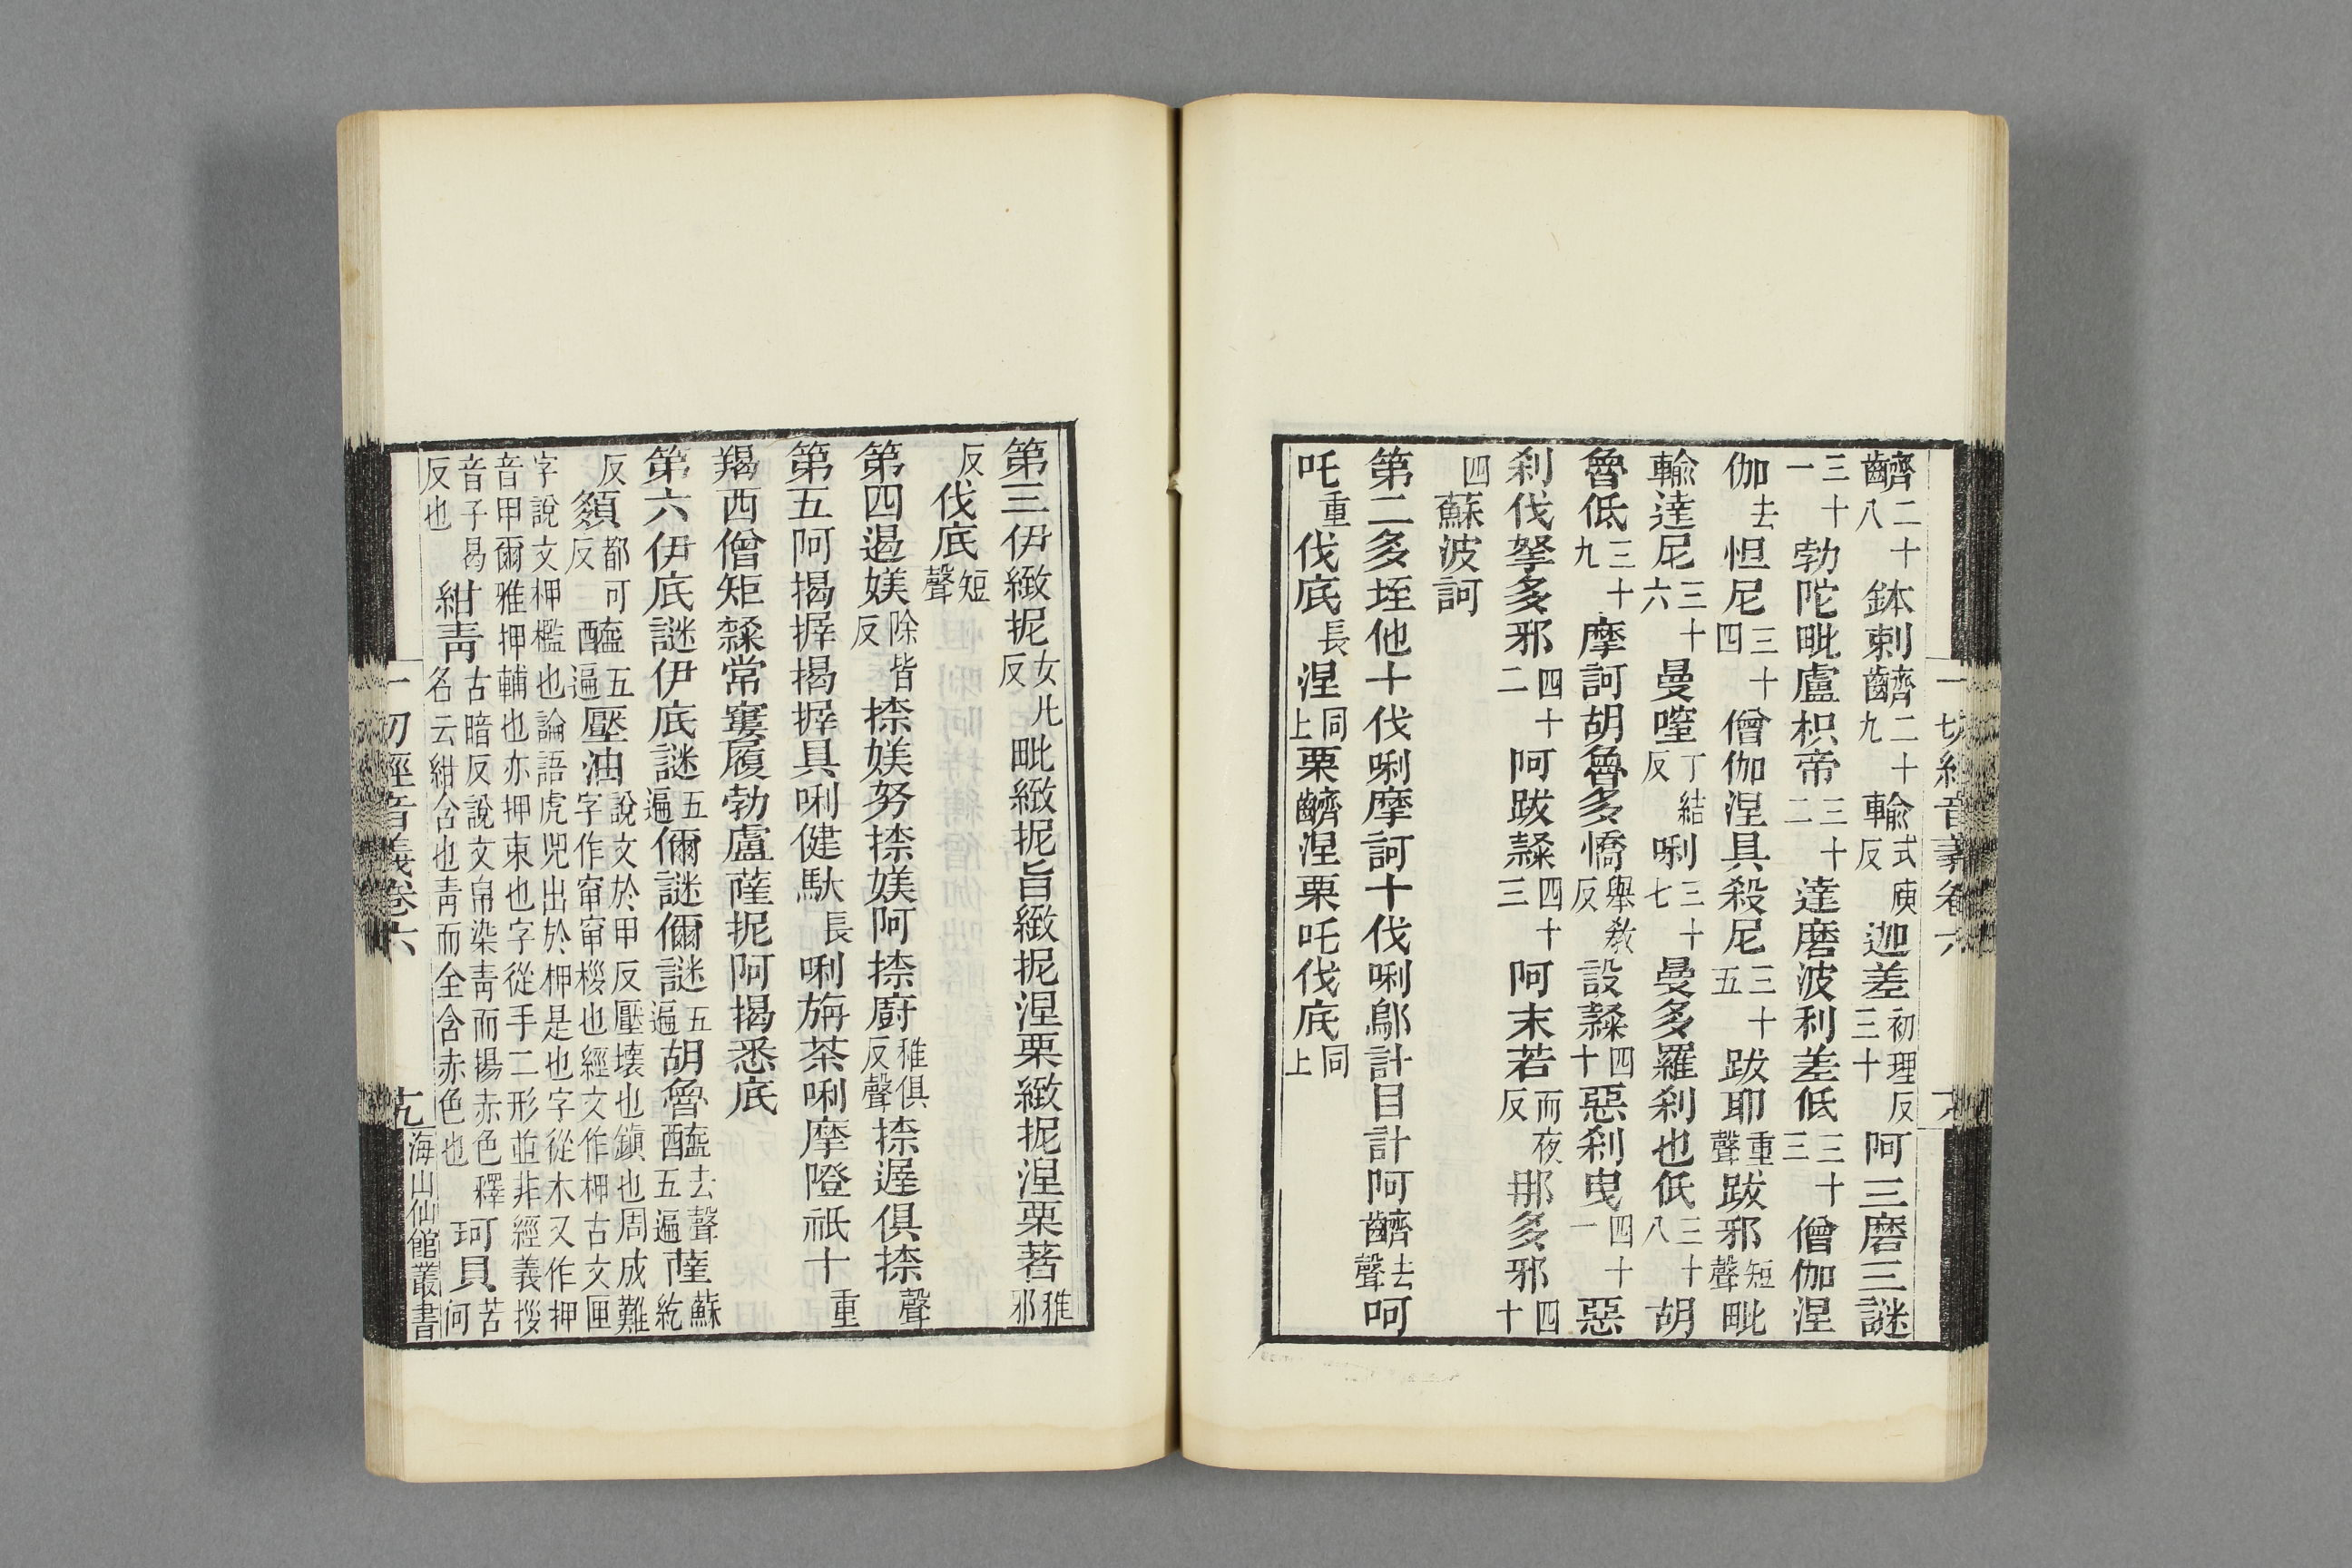 齻二十八鉢剌齻二十九輸式庾反迦差初理反三十阿三磨三謎
三十一勃陀毗盧枳帝三十二達磨波利差低三十三僧伽涅
伽去怛尼三十四僧伽涅具殺尼三十五跋耶重聲跋邪短聲毗
輸達尼三十六曼㗌丁結反唎三十七曼多羅刹也低三十八胡
魯低三十九摩訶胡魯多憍舉敎反設䅵四十惡刹曳四十一惡
刹伐拏多邪四十二阿跋䅵四十三阿末若而夜反那多邪四十
四蘇波訶
第二多垤他十伐唎摩訶十伐唎鄔計目計阿齻去聲呵
吒重伐底長涅同上栗齻涅栗吒伐底同上
一切經音義卷六
第三伊緻抳女几反毗緻抳旨緻抳涅栗緻抳涅栗蒫稚邪
反伐底短聲
第四遏媄除皆反㮈媄努㮈媄阿㮈廚稚俱反聲㮈遲俱㮈聲
第五阿揭搱揭搱具唎健馱長唎旃茶唎摩隥祇十重
羯西僧矩䅵常寠履勃盧薩抳阿揭悉底
第六伊底謎伊底謎五遍儞謎儞謎五遍胡魯醯去聲五遍薩蘇紇
反䫂都可反醯五遍壓油說文於甲反壓壞也鎭也周成難字作窄窄椶也經文作柙古文匣
字說文柙檻也論語虎兕出於柙是也字從木又作押音甲爾雅押輔也亦押束也字從手二形並非經義挼
音子曷反也紺靑古暗反說文帛染靑而揚赤色釋名云紺含也靑而全含赤色也珂貝苦何
一切經音義卷六
海山仙館叢書